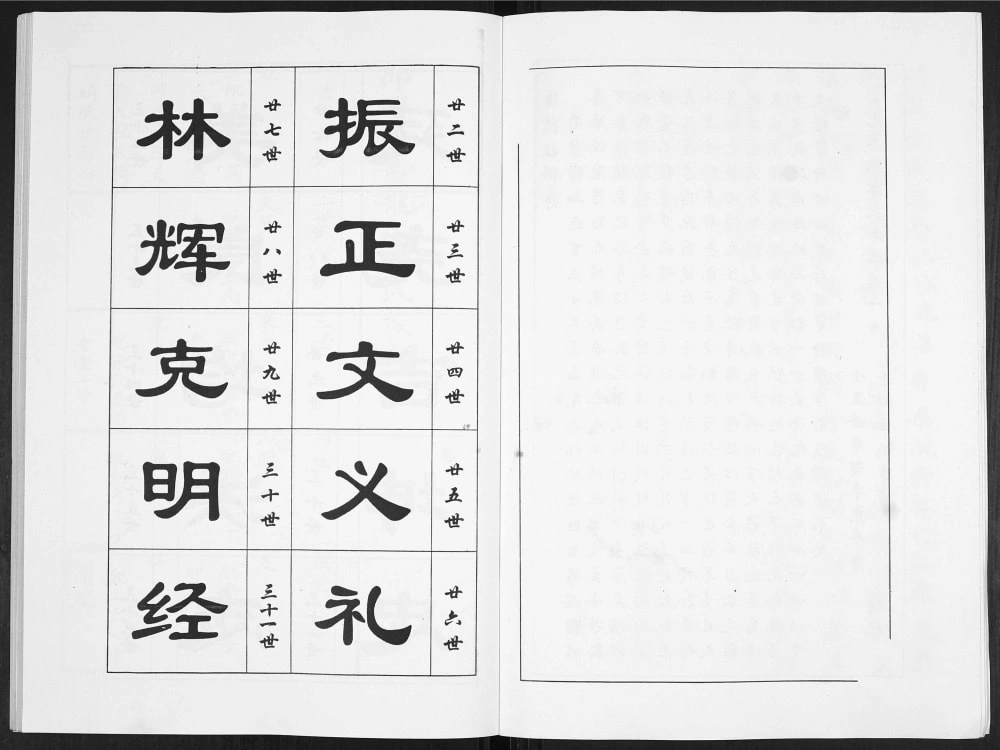 廿二世 振
廿三世 正
廿四世 文
廿五世 义
廿六世 礼
廿七世 林
廿八世 辉
廿九世 克
三十世 明
三十一世 经